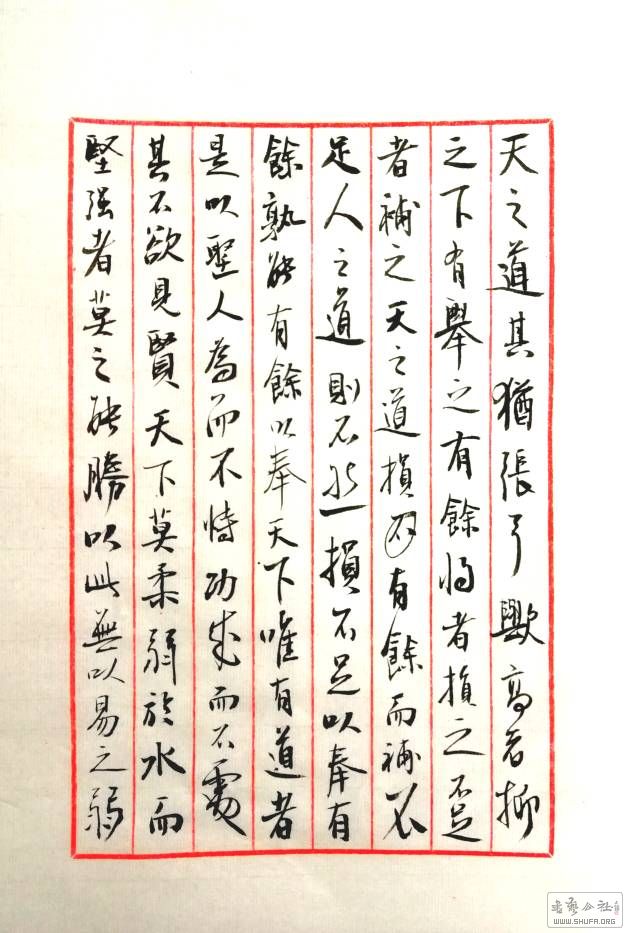 天之道其猶張弓歟高者抑
之下有舉之有餘者損之不足
者補之天之道損有餘而補不
足人之道則不然損不足以奉有
餘孰能有餘以奉天下唯有道者
是以聖人為而不恃功成而不處
其不欲見賢天下莫柔弱於水而
堅强者莫之能勝以此無以易之弱
書藝公社
WWW.SHUFA.ORG